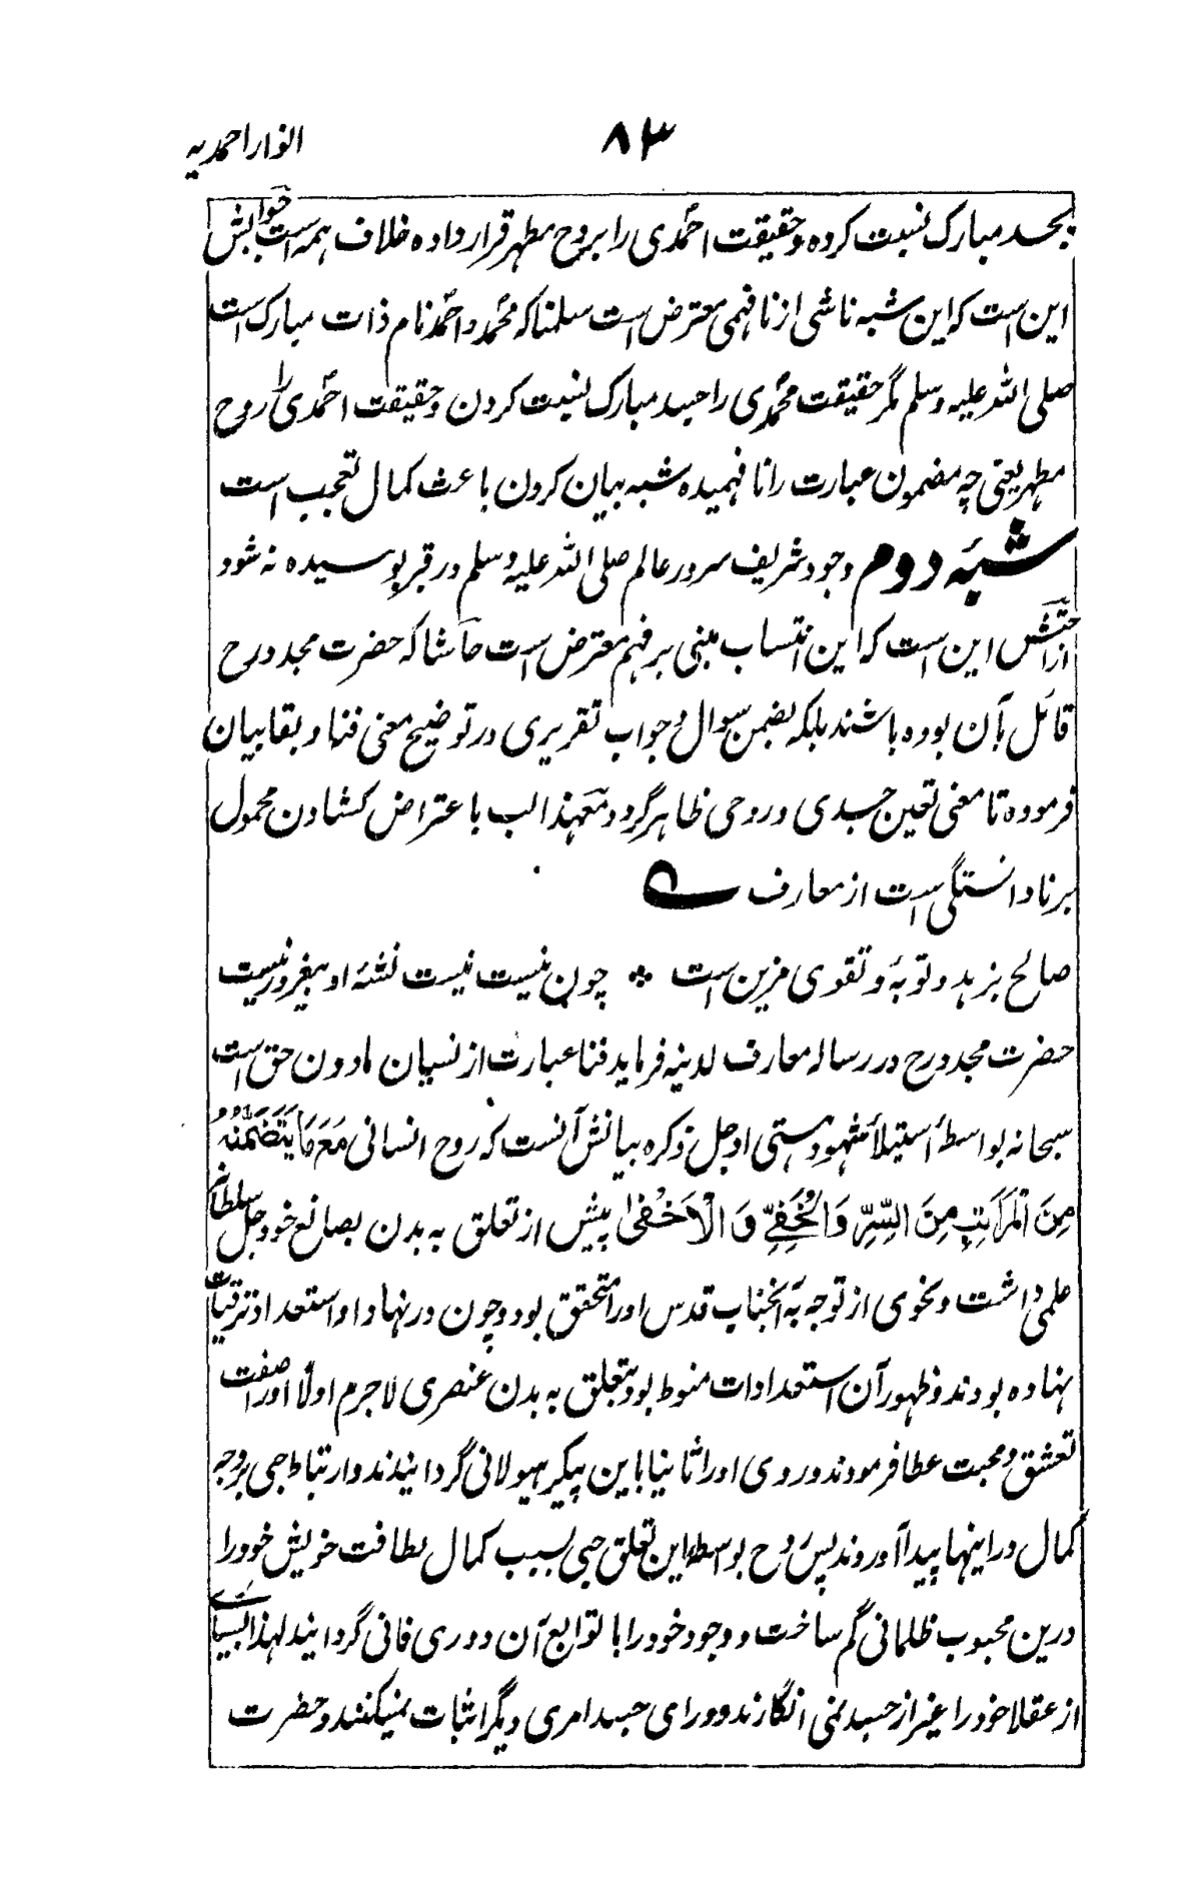 ۸۳
انوار احمدیه
بجسد مبارک نسبت کرده و حقیقت احمدی را بروح مطهر قرار داده خلاف همه است جوابش
این است که این شبه ناشی از نافهمی معترض است سلمنا که محمد و احمد نام ذات مبارک است
صلی الله علیه وسلم مگر حقیقت محمدی را جسد مبارک نسبت کردن و حقیقت احمدی را روح
مطهر یعنی چه مضمون عبارت را نا فهمیده شبه بیان کردن باعث کمال تعجب است
شبهٔ دوم وجود شریف سرور عالم صلی الله علیه وسلم در قبر بوسیده نه شود
این است که این انتساب مبنی بر فهم معترض است حاشا که حضرت مجدد رح
قائل بآن بوده باشند بلکه بضمن سوال و جواب تقریری در توضیح معنی فنا و بقا بیان
فرموده تا معنی تعین جسدی و روحی ظاهر گردد معهذا لب باعتراض کشادن محمول
بر نادانستگی است از معارف ے
صالح بزهد و توبهٔ و تقوی مزین است * چون نیست نیست نشئهٔ او بیغرور نیست
حضرت مجدد رح در رساله معارف لدنیه فرماید فنا عبارت از نسیان مادون حق است
سبحانه بواسطهٔ استیلاٴ شهود هستی او جل ذکره بیانش آنست که روح انسانی مَعَ مَا یَتَضَمَّنُهُ
مِنَ الْمَرَاتِبِ مِنَ السِّرِّ وَالْخَفِیِّ وَ الْاَخْفٰی بیش از تعلق به بدن بصانع خود جل سلطانه
علمی داشت و نحوی از توجه بآنجناب قدس او را متحقق بود و چون در نهاد او استعداد ترقیات
نهاده بودند و ظهور آن استعدادات منوط بود بتعلق به بدن عنصری لاجرم اولاً او را صفت
تعشق و محبت عطا فرمودند و روی او را ثانیا باین پیکر هیولانی گردانیدند و ارتباط حبی بر وجه
کمال در اینها پیدا آوردند پس روح بواسطه این تعلق حبی بسبب کمال لطافت خویش خود را
درین محبوب ظلمانی گم ساخت و وجود خود را با توابع آن در وی فانی گردانید لهذا بسیاری
از عقلا خود را غیر از جسد نمی انگارند و ورای جسد امری دیگر اثبات نمیکنند و حضرت